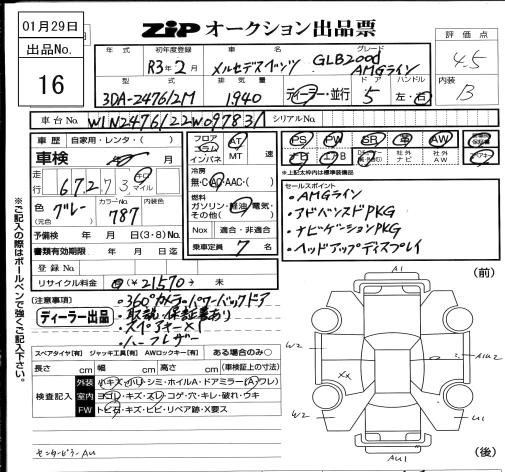 01月29日
出品No.
16
ZIP オークション出品票
評価点
4.5
内装
B
年式 初年度登録 車名 グレード
R3年2月 メルセデスベンツ GLB200d AMGライン
型式 排気量 ドア ハンドル
3DA-247612M 1940 ディーラー・並行 5 左・右
車台No. W1N2476122W097831 シリアルNo.
車歴 自家用・レンタ・( )
車検 月
走行 67273 キロ マイル
色(元色) グレー カラーNo. 787 内装色
予備検 年 月 日(3・8)No.
書類有効期限 年 月 日迄
登録No.
リサイクル料金 (¥21570) 未
フロア コラム インパネ AT MT 速
冷房 無・C・AC・AAC・( )
燃料 ガソリン・軽油・電気・その他( )
Nox 適合・非適合
乗車定員 7 名
PS PW SR 革 AW
ナビ エアB 社外ナビ 社外AW
※上記太枠内は標準装備品
セールスポイント
・AMGライン
・アドバンスドPKG
・ナビゲーションPKG
・ヘッドアップディスプレイ
[注意事項]
ディーラー出品
・360°カメラ・パワーバックドア
・取説・保証書あり
・スペアキー×1
・ハーフレザー
スペアタイヤ[有] ジャッキ工具[有] AWロックキー[有] ある場合のみ○
長さ cm 幅 cm 高さ cm (車検証上の寸法)
検査記入
外装 小キズ・小U・シミ・ホイルA・ドアミラー(A)フレ)
室内 ヨゴレ・キズ・スレ・コゲ・穴・キレ・破れ・ウキ
FW トビ石・キズ・ヒビ・リペア跡・X要ス
センターピラーAU
※ご記入の際はボールペンで強くご記入下さい。
(前)
A1
W2
XX
W2
U1
AU1
(後)